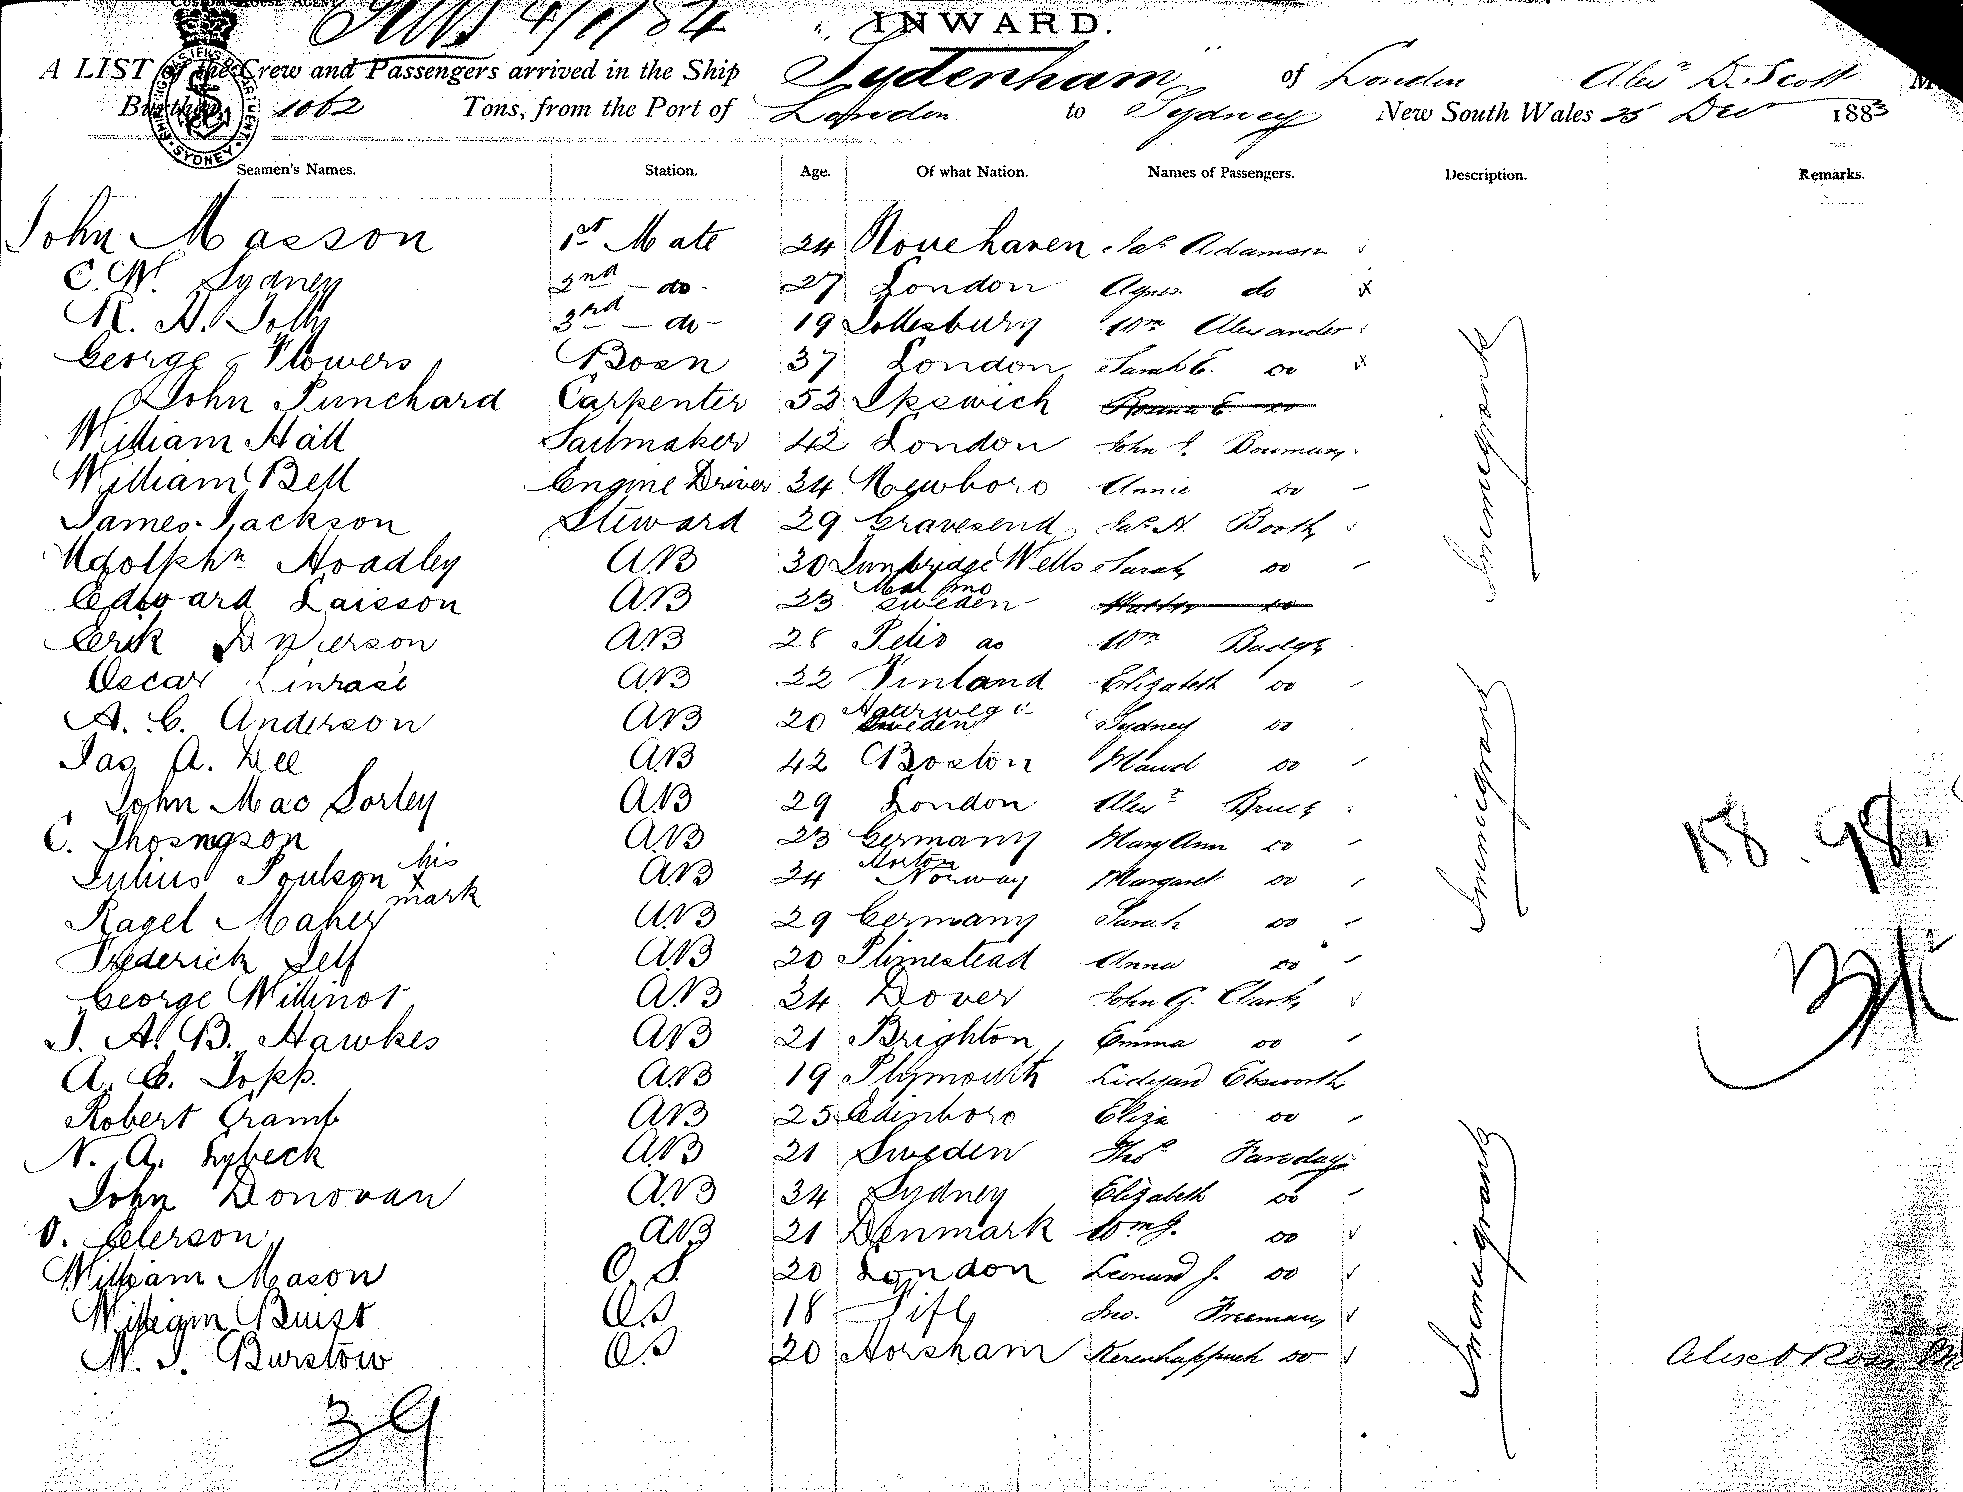 INWARD.
A LIST of the Crew and Passengers arrived in the Ship Sydenham of London Alexr D. Scott
Burthen 1062 Tons, from the Port of London to Sydney New South Wales 25 Dec 1883
Seamen's Names. Station. Age. Of what Nation. Names of Passengers. Description. Remarks.
John Masson 1st Mate 24 Adamson
C. W. Sydney 2nd - do - 27 London Agnes do x
R. H. Jolly 3rd - do - 19 Wm Alexander
George Flowers Bosn 37 London Sarah E. do x
John Punchard Carpenter 53 Ipswich
William Hall Sailmaker 42 London John J. Bowman
William Bell Engine Driver 34 Newboro Annie do
James Jackson Steward 29 Gravesend Jas H. Booth
Hoadley AB 30 Tunbridge Wells Sarah do
Edward Laisson AB 23 Sweden
Erik AB 28 Wm Budge
Oscar AB 22 Finland Elizabeth do
A. C. Anderson AB 20 Sweden Sydney do
Jas A. Lee AB 42 Boston Maud do
John Mac Sorley AB 29 London Alexr Bruce
C. AB 23 Germany Mary Ann do
Julius Poulson his x mark AB 24 Norway Margaret do
Ragel Maher AB 29 Germany Sarah do
Frederick Self AB 20 Plimestead Anna do
George Willmot AB 34 Dover John G. Clark
J. A. B. Hawkes AB 21 Brighton Emma do
A. E. Topp. AB 19 Plymouth Ebsworth
Robert Cramb AB 25 Edinboro Eliza do
N. A. Lybeck AB 21 Sweden Thos
John Donovan AB 34 Sydney Elizabeth do
O. Peterson AB 21 Denmark Wm J. do
William Mason O.S. 20 London Leonard J. do
William Buist O.S 18 Fife Jno. Freeman
N. J. Burstow O.S 20 Horsham Kerenhappuch do
Immigrants
Immigrants
Immigrants
39